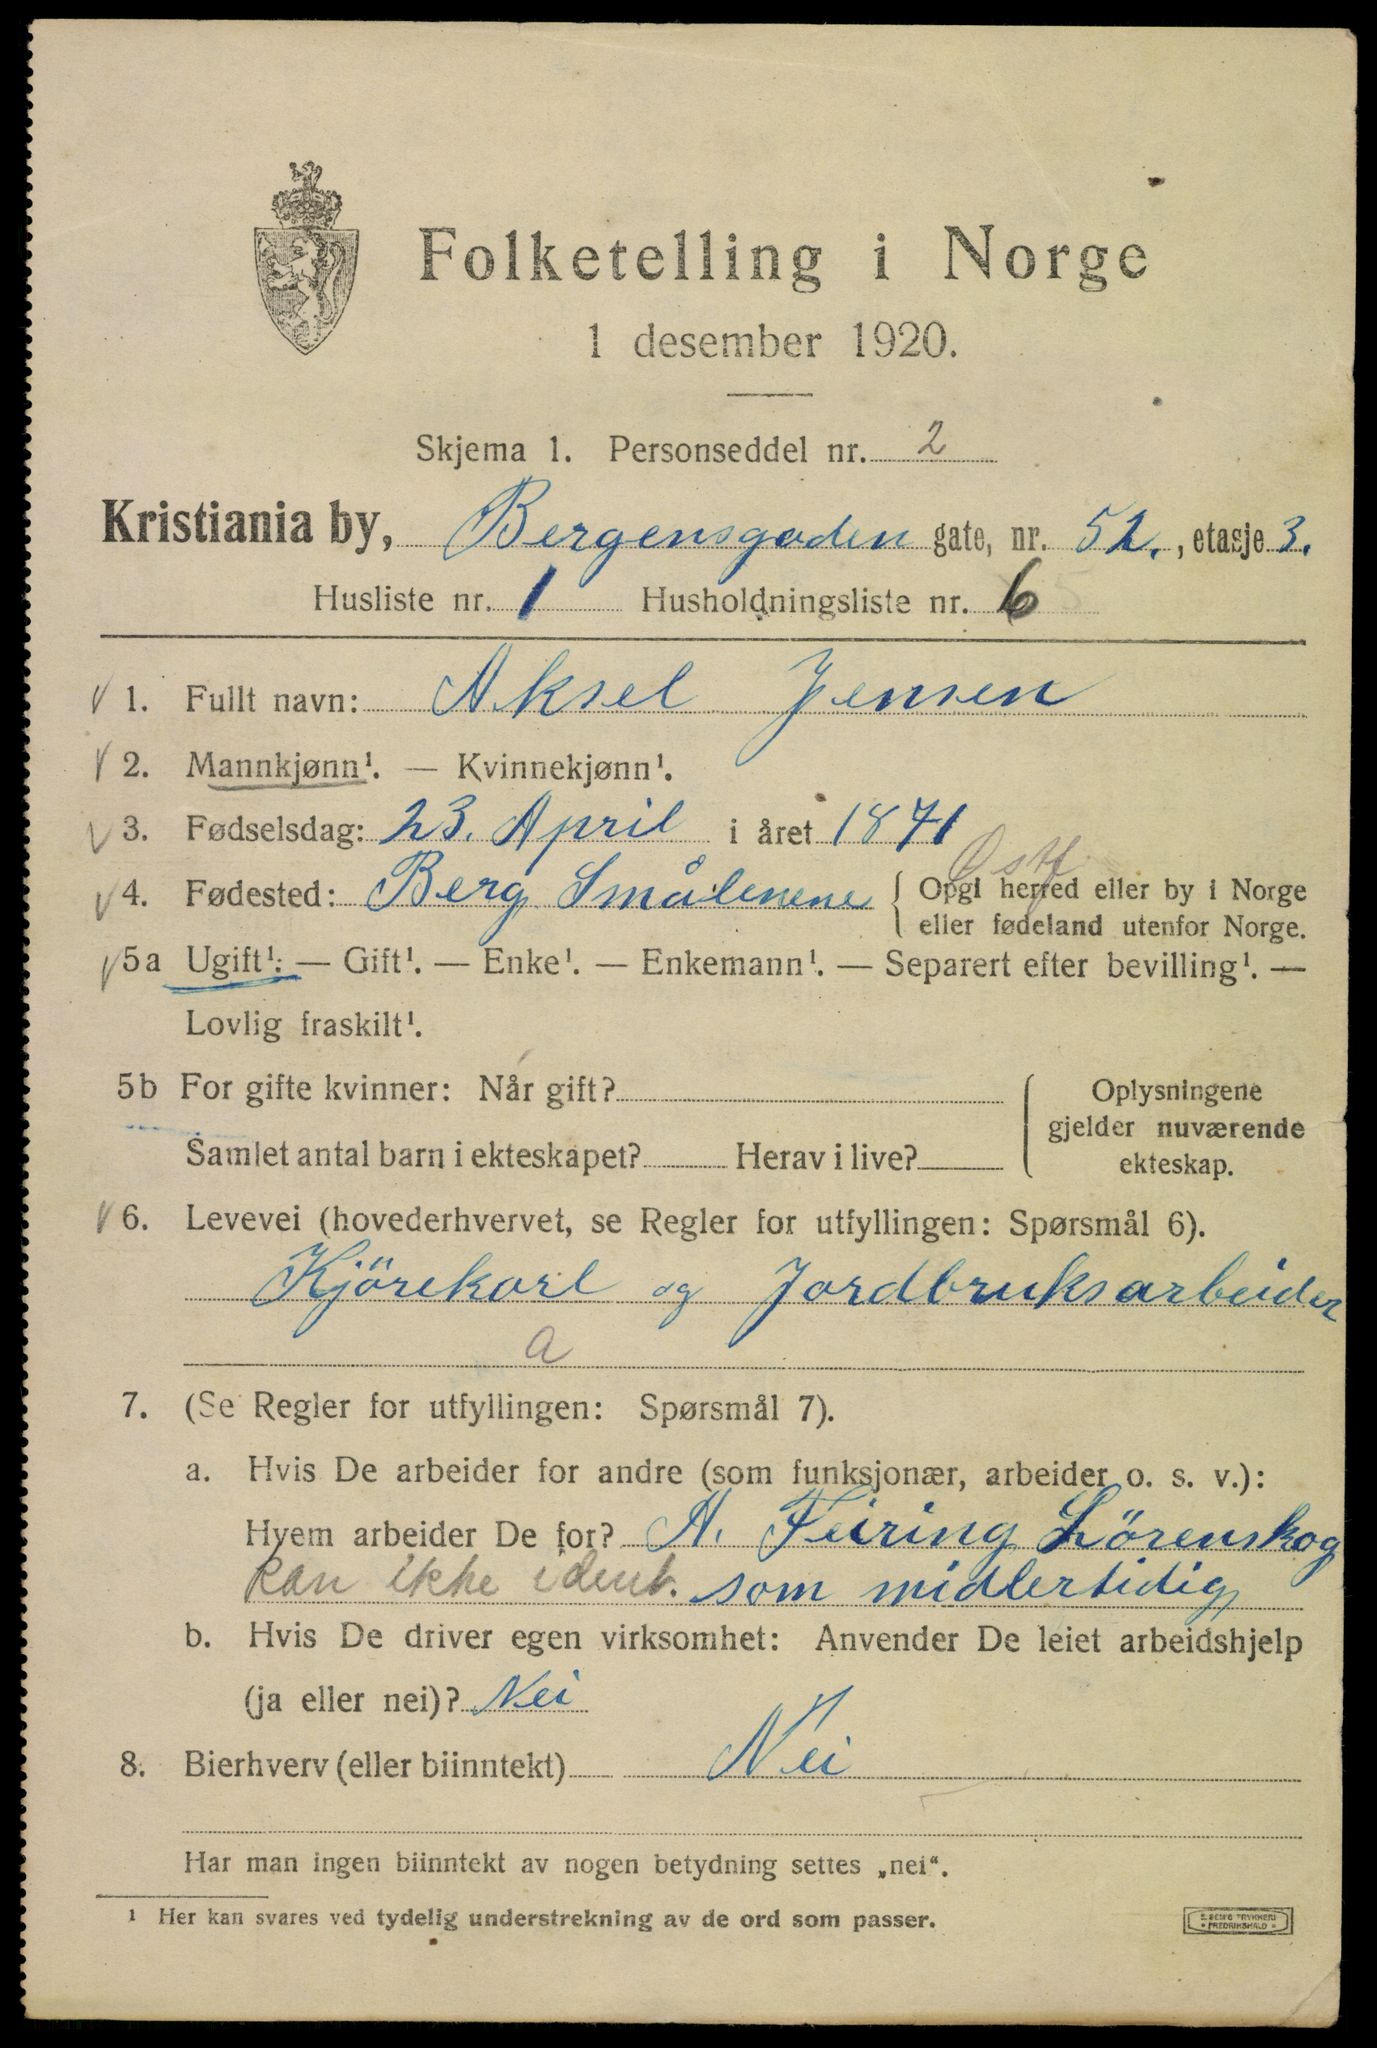 Folketelling i Norge
1 desember 1920.
Skjema 1. Personseddel nr. 2
Kristiania by, Bergensgaden gate, nr. 52., etasje 3.
Husliste nr. 1 Husholdningsliste nr. 6 5
√ 1. Fullt navn: Aksel Jensen
√ 2. Mannkjønn¹. — Kvinnekjønn¹.
√ 3. Fødselsdag: 23. April i året 1871
Østf.
√ 4. Fødested: Berg Smålenene { Opgi herred eller by i Norge
eller fødeland utenfor Norge.
√ 5a Ugift¹: — Gift¹. — Enke¹. — Enkemann¹. — Separert efter bevilling¹. —
Lovlig fraskilt¹.
5b For gifte kvinner: Når gift? { Oplysningene
gjelder nuværende
Samlet antal barn i ekteskapet? Herav i live?
ekteskap.
√ 6. Levevei (hovederhvervet, se Regler for utfyllingen: Spørsmål 6).
Kjörekarl og Jordbruksarbeider
a
7. (Se Regler for utfyllingen: Spørsmål 7).
a. Hvis De arbeider for andre (som funksjonær, arbeider o. s. v.):
Hvem arbeider De for? A. Feiring Lörenskog
kan ikke ident. som midlertidig
b. Hvis De driver egen virksomhet: Anvender De leiet arbeidshjelp
(ja eller nei)? Nei
8. Bierhverv (eller biinntekt) Nei
Har man ingen biinntekt av nogen betydning settes „nei“.
¹ Her kan svares ved tydelig understrekning av de ord som passer.
E. SEM'S TRYKKERI
• FREDRIKSHALD •